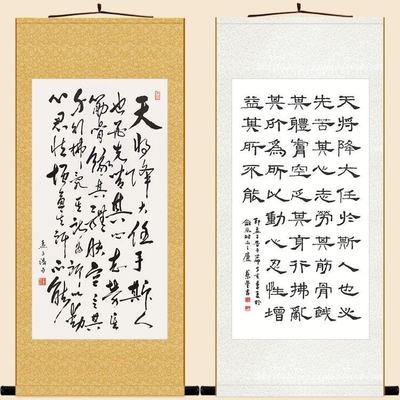 天将降大任于斯人
也必先苦其心志劳其
筋骨饿其體肤空乏其
身行拂乱其所为所以動
心忍性增益其所不能
天將降大任於斯人也必
先苦其心志勞其筋骨餓
其體膚空乏其身行拂亂
其所為所以動心忍性增
益其所不能